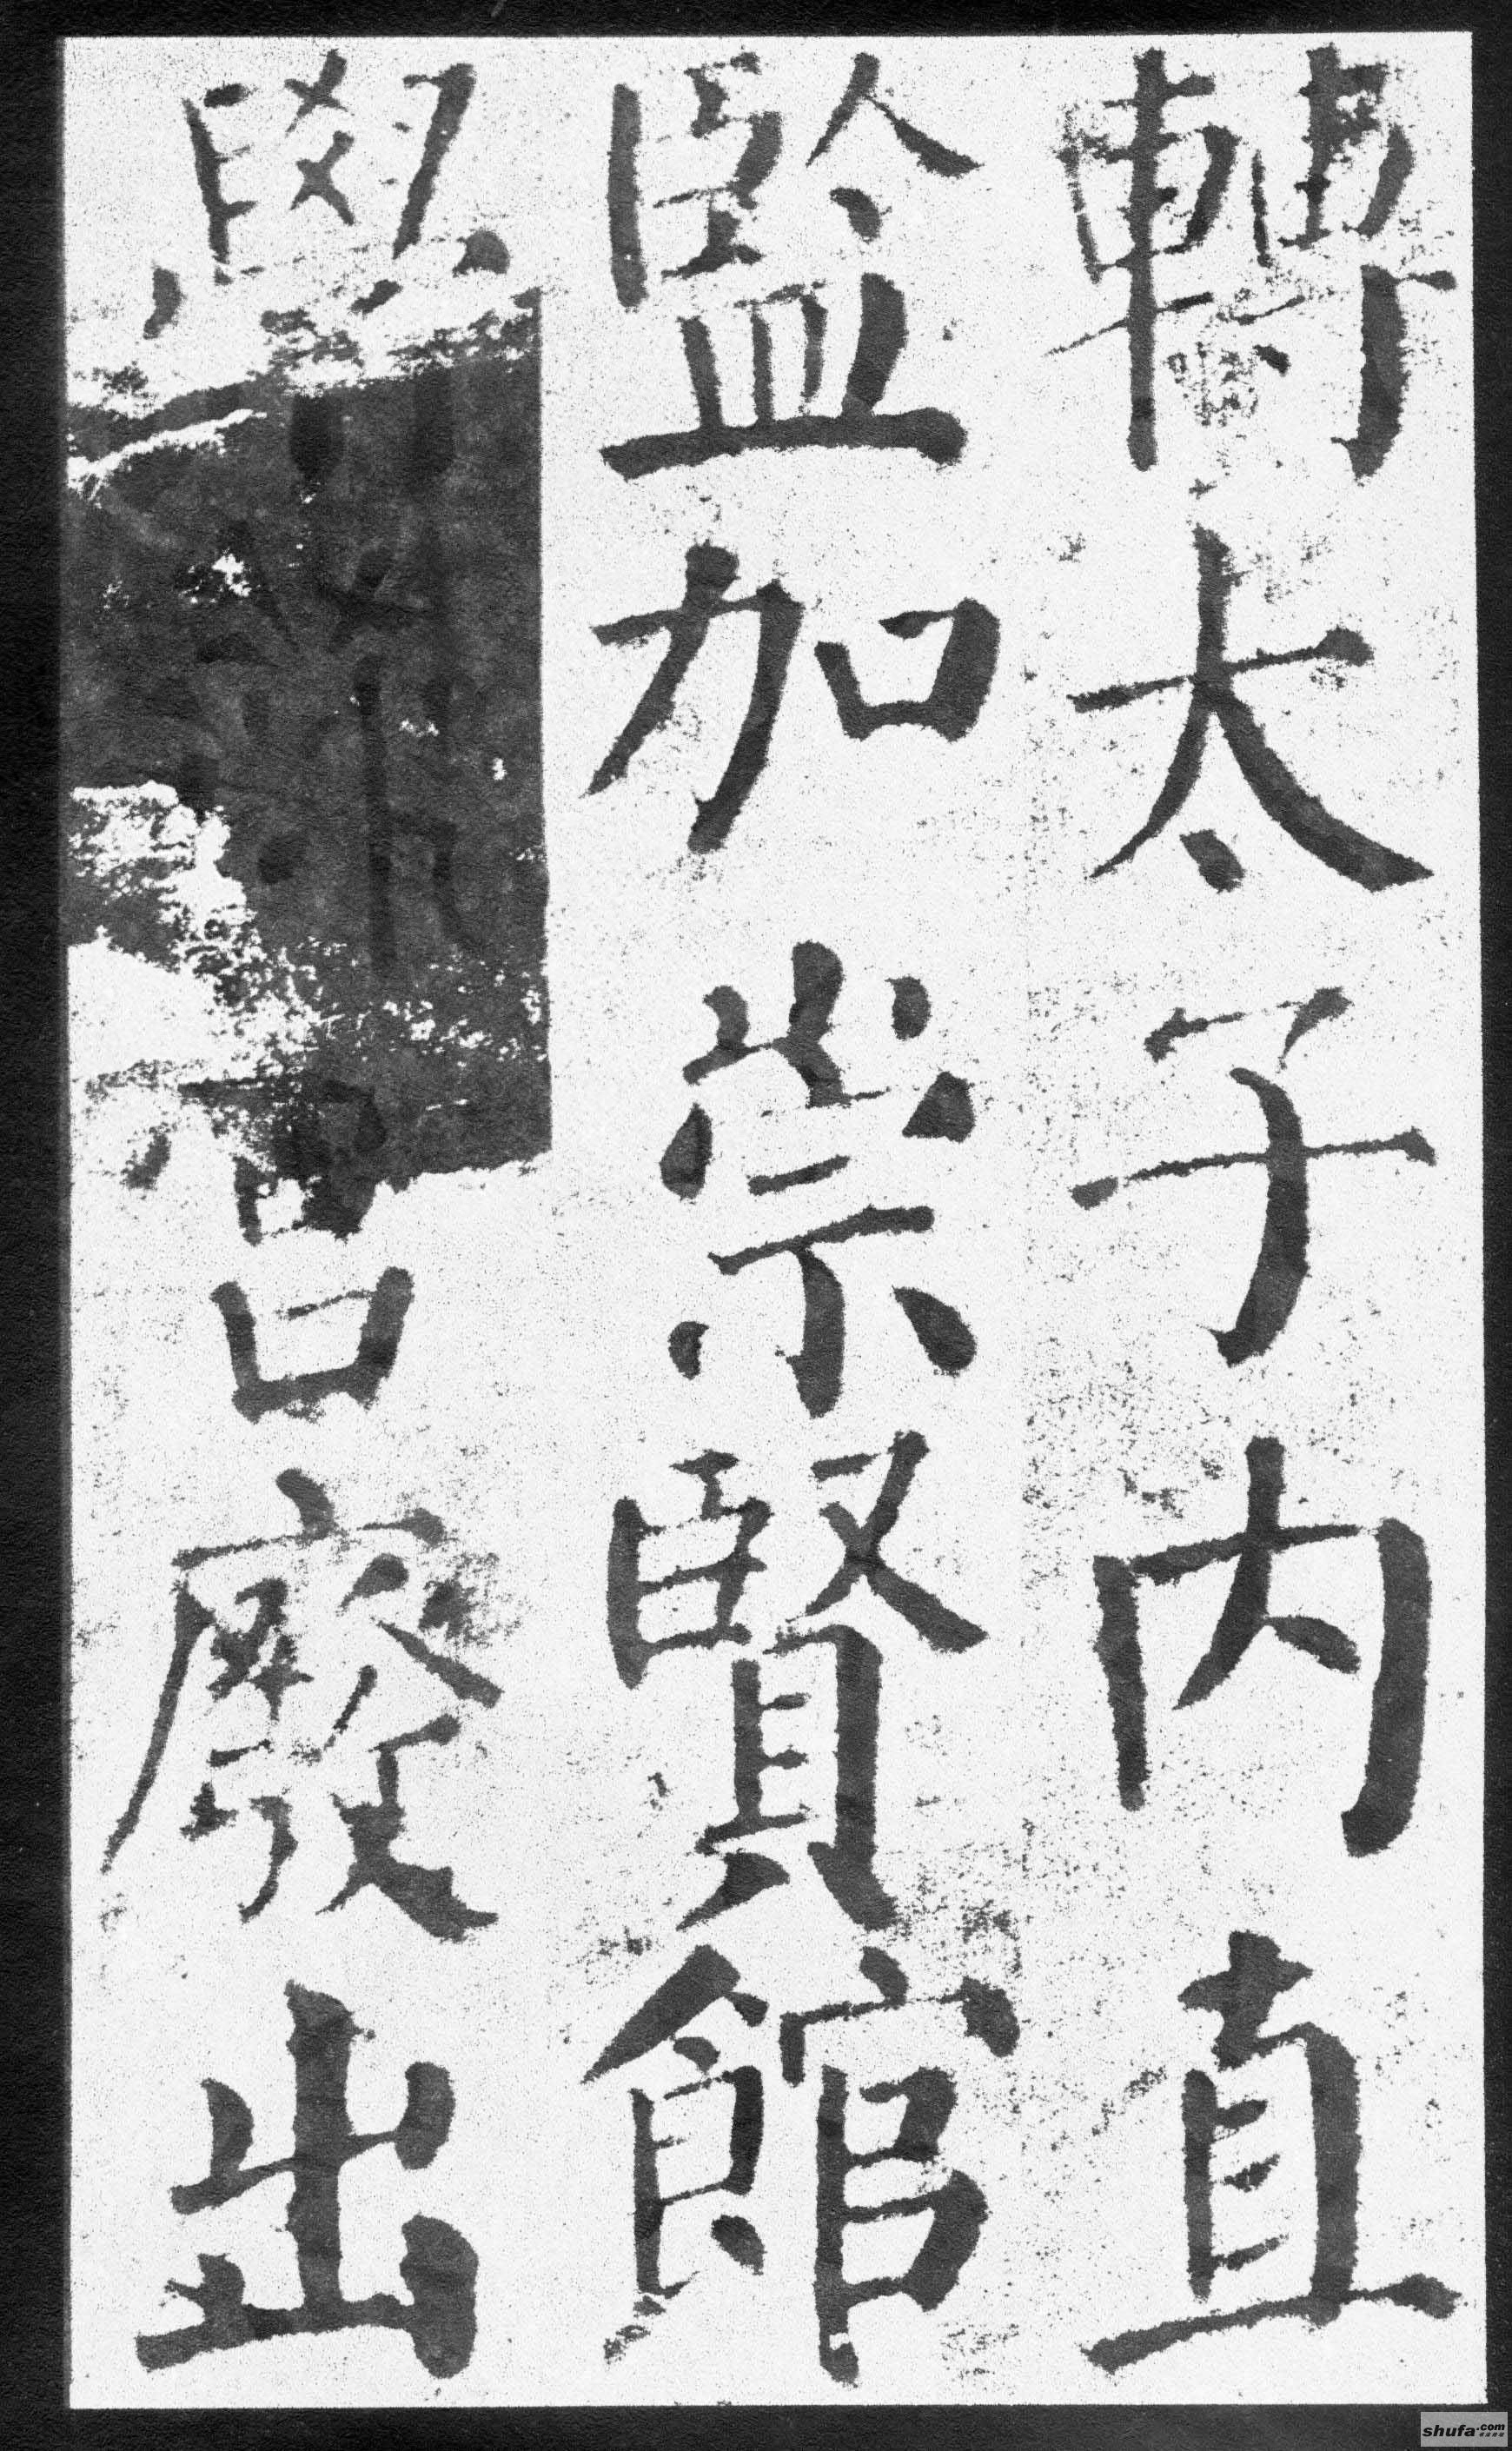 轉太子內直
監加崇賢館
學
宮廢出
shufa.com